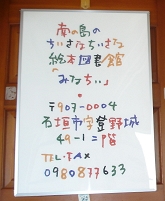 南の島の
ちいさなちいさな
絵本図書館
「みなちぃ」
〒907-0004
石垣市字登野城
49-1 二階
TEL・FAX
0980877633